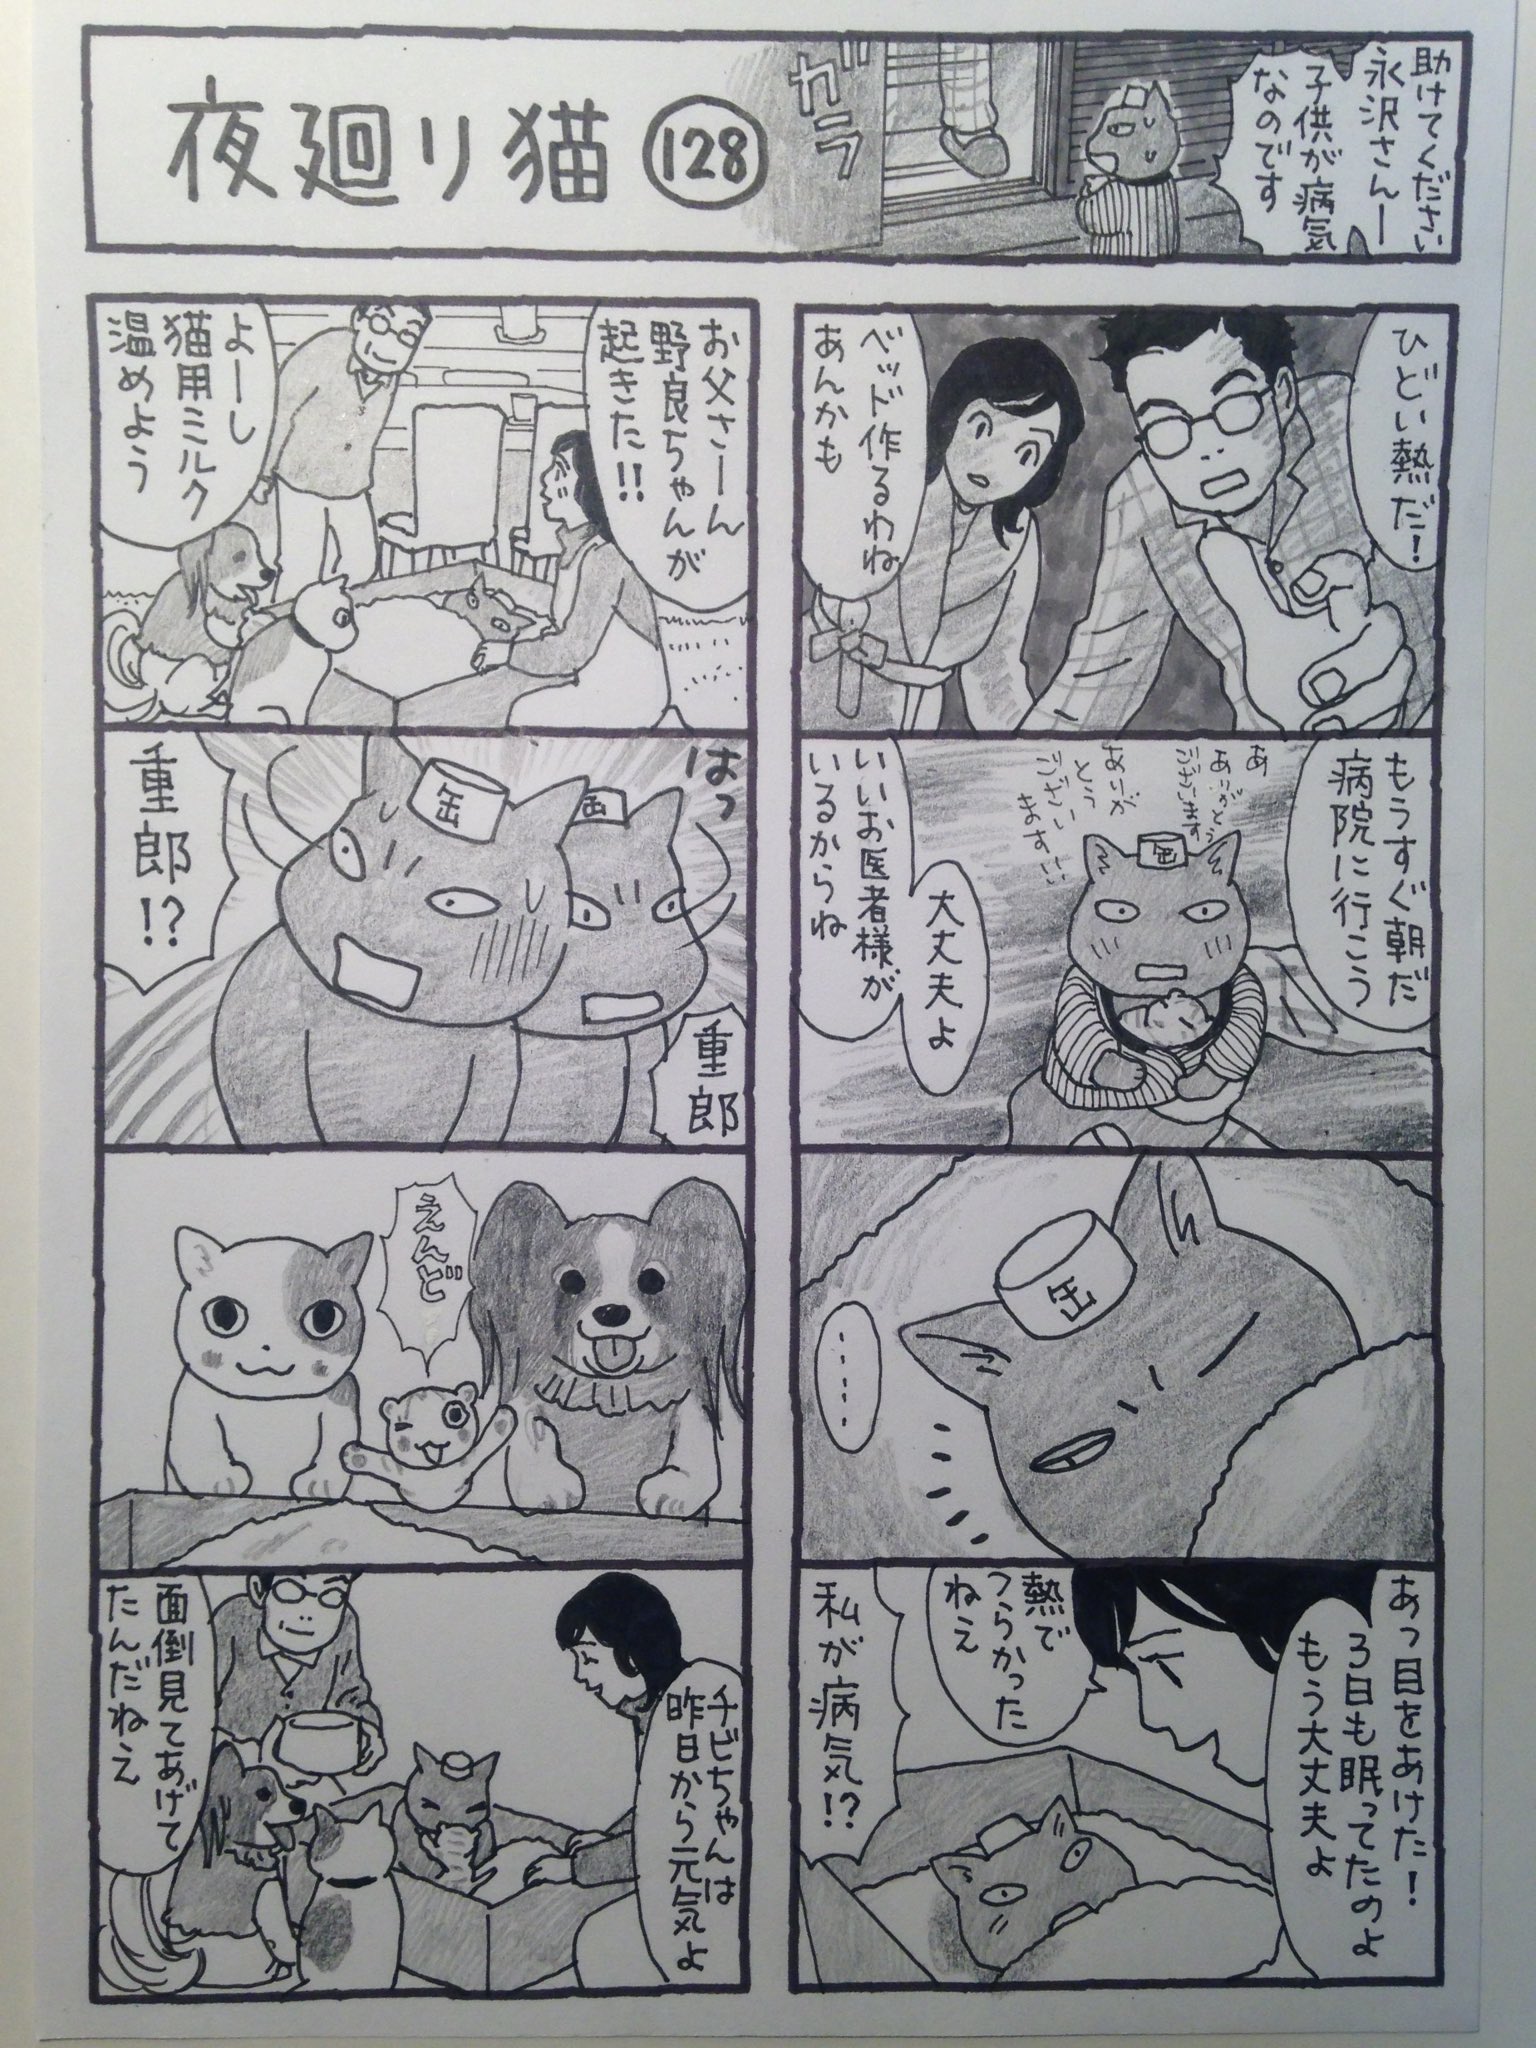 夜廻り猫
128
ガラ
助けてください
永沢さんー
子供が病気
なのです
ひどい熱だ!
ベッド作るわね
あんかも
もうすぐ朝だ
病院に行こう
あ
ありがとう
ございます
ありが
とう
ござい
ますい
大丈夫よ
いいお医者様が
いるからね
缶
缶
・・・・・
あっ目をあけた!
3日も眠ってたのよ
もう大丈夫よ
熱で
つらかった
ねえ
私が病気!?
お父さーん
野良ちゃんが
起きた!!
よーし
猫用ミルク
温めよう
はっ
缶
缶
重郎
重郎!?
えんど
チビちゃんは
昨日から元気よ
面倒見てあげて
たんだねえ